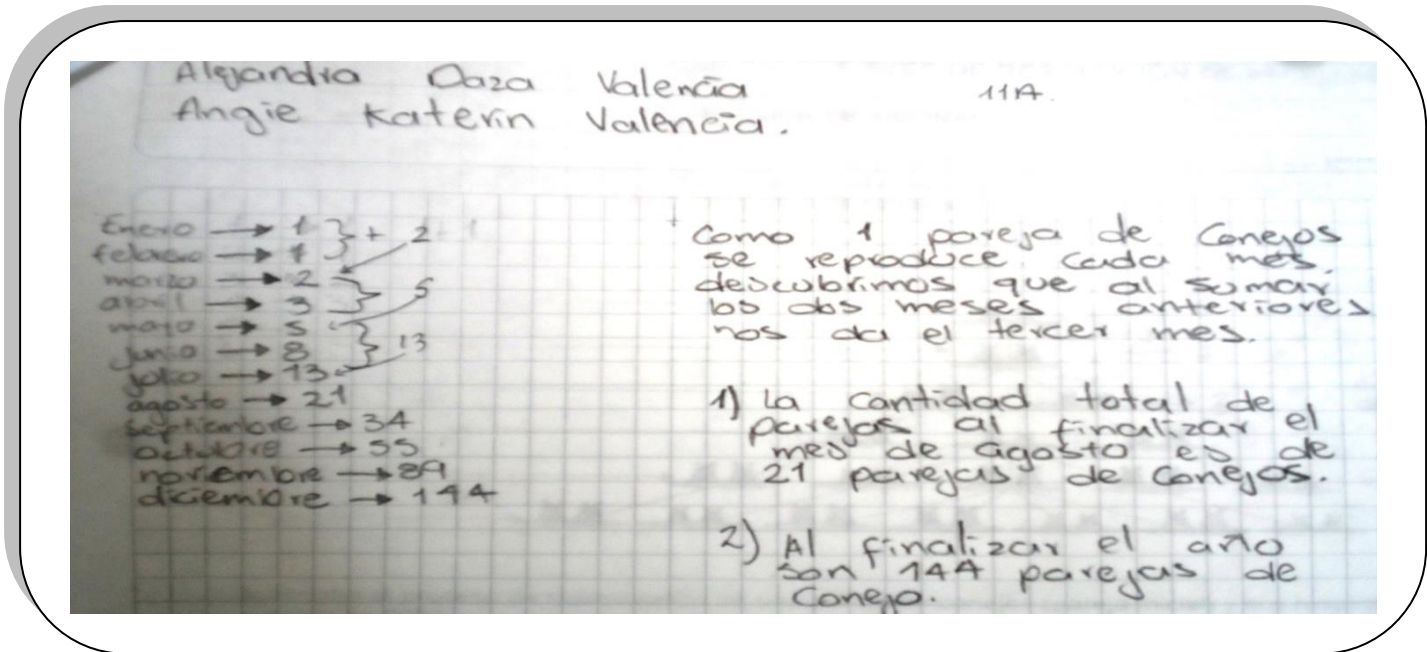 Alejandra Daza Valencia 11A.
Angie Katerin Valencia.
Enero → 1 } + 2
febrero → 1
marzo → 2
abril → 3 } 5
mayo → 5
junio → 8 } 13
julio → 13
agosto → 21
septiembre → 34
octubre → 55
noviembre → 89
diciembre → 144
Como 1 pareja de Conejos
se reproduce cada mes.
descubrimos que al sumar
los dos meses anteriores
nos da el tercer mes.
1) La cantidad total de
parejas al finalizar el
mes de agosto es de
21 parejas de Conejos.
2) Al finalizar el año
son 144 parejas de
Conejo.